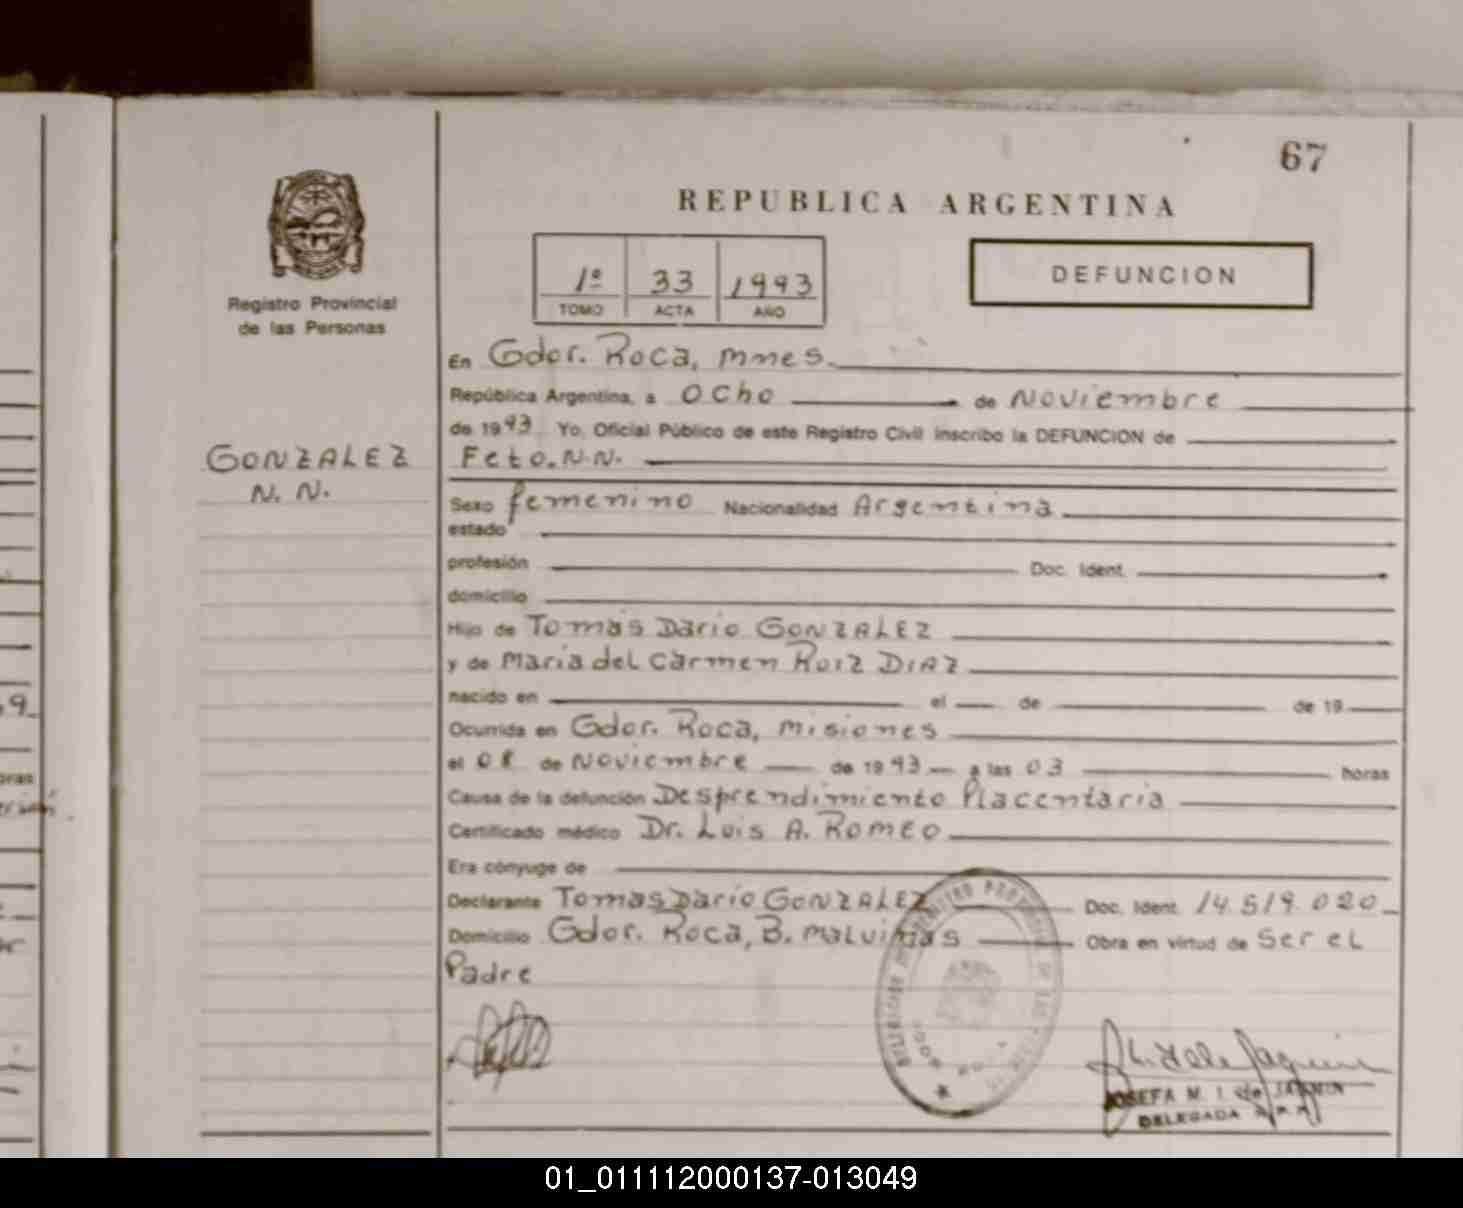 67
REPUBLICA ARGENTINA
1º 33 1993
TOMO ACTA AÑO
DEFUNCION
Registro Provincial
de las Personas
En Gdor. Roca, Mnes.
República Argentina, a Ocho de Noviembre
de 1993 Yo, Oficial Público de este Registro Civil inscribo la DEFUNCION de
GONZALEZ
N. N.
Feto. N.N.
Sexo femenino Nacionalidad Argentina
estado
profesión Doc. Ident.
domicilio
Hijo de Tomás Dario GONZALEZ
y de Maria del Carmen RUIZ DIAZ
nacido en el de de 19
Ocurrida en Gdor. Roca, Misiones
el 08 de Noviembre de 1993 a las 03 horas
Causa de la defunción Desprendimiento Placentaria
Certificado médico Dr. Luis A. Romeo
Era cónyuge de
Declarante Tomas Dario GONZALEZ Doc. Ident. 14.519.020
Domicilio Gdor. Roca, B. Malvinas Obra en virtud de Ser el
Padre
JOSEFA M. I. de
DELEGADA
01_011112000137-013049